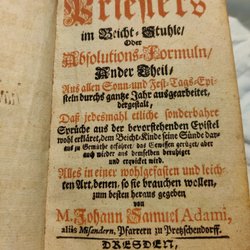 Priesters
im Beicht-Stuhle/
Oder
Absolutions-Formuln/
Ander Theil/
Aus allen Sonn- und Fest-Tags-Epi-
steln durchs gantze Jahr ausgearbeitet,
dergestalt,
Daß jedesmahl etliche sonderbahre
Sprüche aus der bevorstehenden Epistel
wohl erkläret, dem Beicht-Kinde seine Sünde dar-
aus zu Gemüthe geführet, das Gewissen gerühret, aber
auch wieder aus demselben beruhiget
und erqvicket wird.
Alles in einer wohlgefaßten und leich-
ten Art, denen, so sie brauchen wollen,
zum besten heraus gegeben
von
M. Johann Samuel Adami,
aliàs Misandern, Pfarrern zu Pretzschendorff.
DRESDEN,